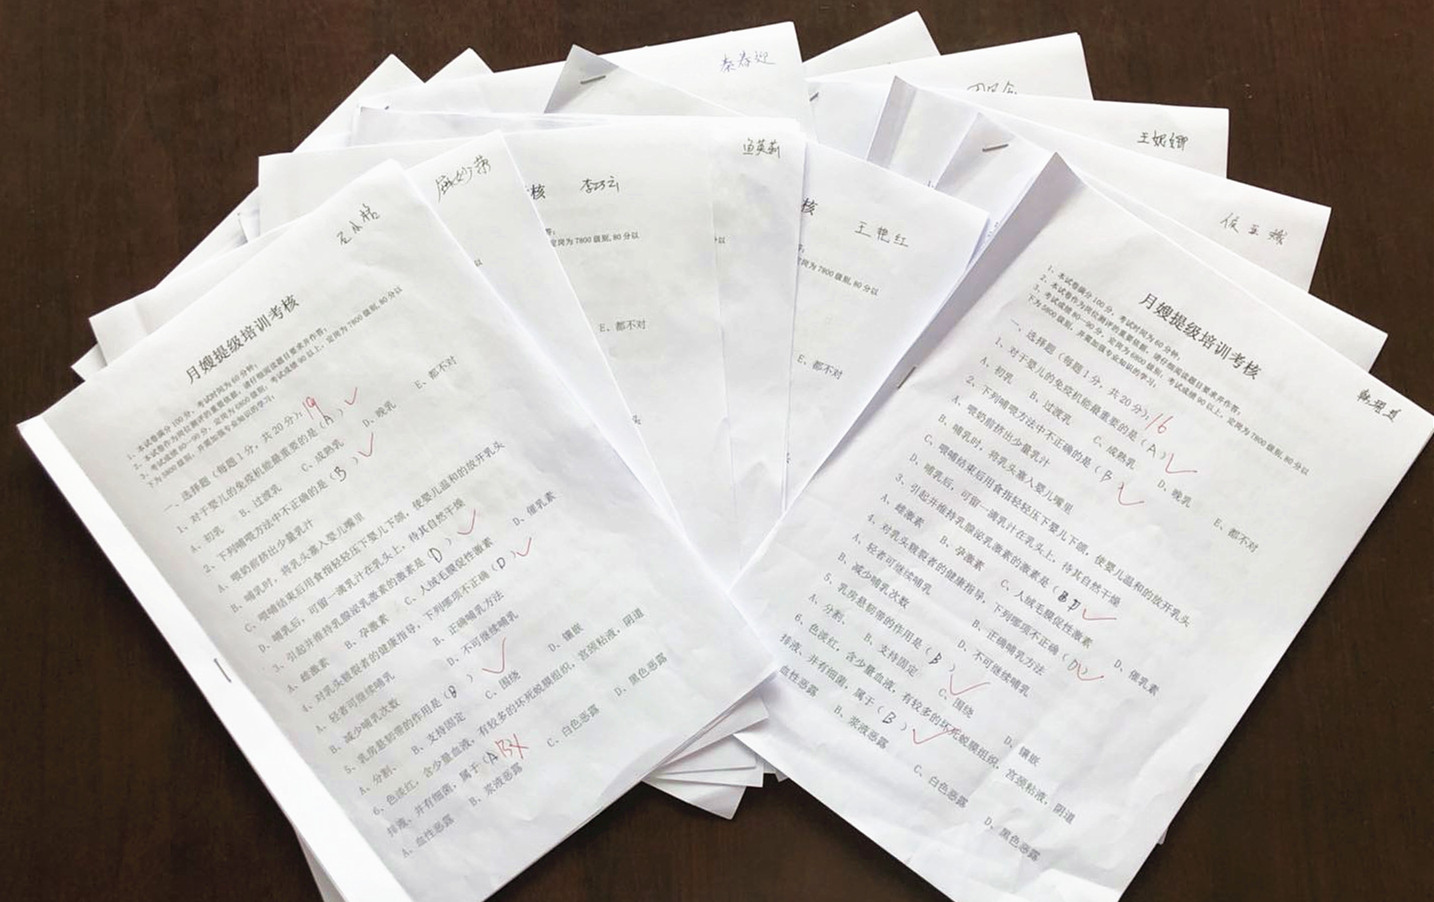 秦春迎
王妮娜
鱼英莉
侯亚娥
核 李巧云
定岗为 7800 级别, 80 分以
E、都不对
核 王艳红
7800 级别, 80 分以
E、都不对
月嫂提级培训考核
1、本试卷满分 100 分, 考试时间为 60 分钟;
2、本试卷作为岗位测评的重要依据, 请仔细阅读题目要求并作答;
3、考试成绩 80—90 分, 定岗为 6800 级别, 考试成绩 90 以上, 定岗为 7800 级别, 80 分以
下为 5800 级别, 并需加强专业知识的学习;
一、选择题(每题 1 分, 共 20 分); 19
1、对于婴儿的免疫机能最重要的是(A)
A、初乳 B、过渡乳 C、成熟乳 D、晚乳 E、都不对
2、下列哺喂方法中不正确的是(B)
A、喂奶前挤出少量乳汁
B、哺乳时, 将乳头塞入婴儿嘴里
C、喂哺结束后用食指轻轻压下婴儿下颌, 使婴儿温和的放开乳头
D、哺乳后, 可留一滴乳汁在乳头上, 待其自然干燥
3、引起并维持乳腺泌乳激素的激素是(D)
A、雌激素 B、孕激素 C、人绒毛膜促性激素 D、催乳素
4、对乳头皲裂者的健康指导, 下列哪项不正确(D)
A、轻者可继续哺乳 B、正确哺乳方法
B、减少哺乳次数 D、不可继续哺乳
5、乳房悬韧带的作用是(B)
A、分割 B、支持固定 C、围绕 D、镶嵌
6、色淡红, 含少量血液, 有较多的坏死蜕膜组织, 宫颈粘液, 阴道
排液、并有细菌, 属于(A B
A、血性恶露 B、浆液恶露 C、白色恶露 D、黑色恶露
月嫂提级培训考核
1、本试卷满分 100 分, 考试时间为 60 分钟;
2、本试卷作为岗位测评的重要依据, 请仔细阅读题目要求并作答;
3、考试成绩 80—90 分, 定岗为 6800 级别, 考试成绩 90 以上, 定岗为 7800 级别, 80 分以
下为 5800 级别, 并需加强专业知识的学习;
一、选择题(每题 1 分, 共 20 分); 16
1、对于婴儿的免疫机能最重要的是(A)
A、初乳 B、过渡乳 C、成熟乳 D、晚乳 E、都不对
2、下列哺喂方法中不正确的是(B)
A、喂奶前挤出少量乳汁
B、哺乳时, 将乳头塞入婴儿嘴里
C、喂哺结束后用食指轻轻压下婴儿下颌, 使婴儿温和的放开乳头
D、哺乳后, 可留一滴乳汁在乳头上, 待其自然干燥
3、引起并维持乳腺泌乳激素的激素是(D)
A、雌激素 B、孕激素 C、人绒毛膜促性激素 D、催乳素
4、对乳头皲裂者的健康指导, 下列哪项不正确(D)
A、轻者可继续哺乳 B、正确哺乳方法
B、减少哺乳次数 D、不可继续哺乳
5、乳房悬韧带的作用是(B)
A、分割 B、支持固定 C、围绕 D、镶嵌
6、色淡红, 含少量血液, 有较多的坏死蜕膜组织, 宫颈粘液, 阴道
排液、并有细菌, 属于(B)
血性恶露 B、浆液恶露 C、白色恶露 D、黑色恶露